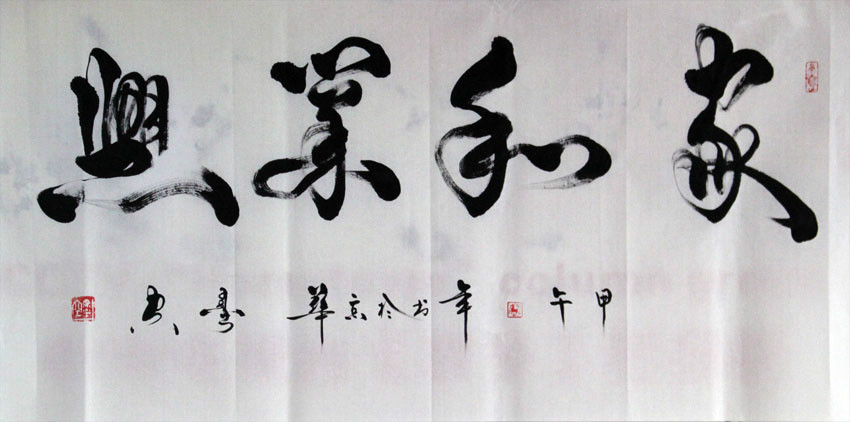 家和業興
甲午年书於京華